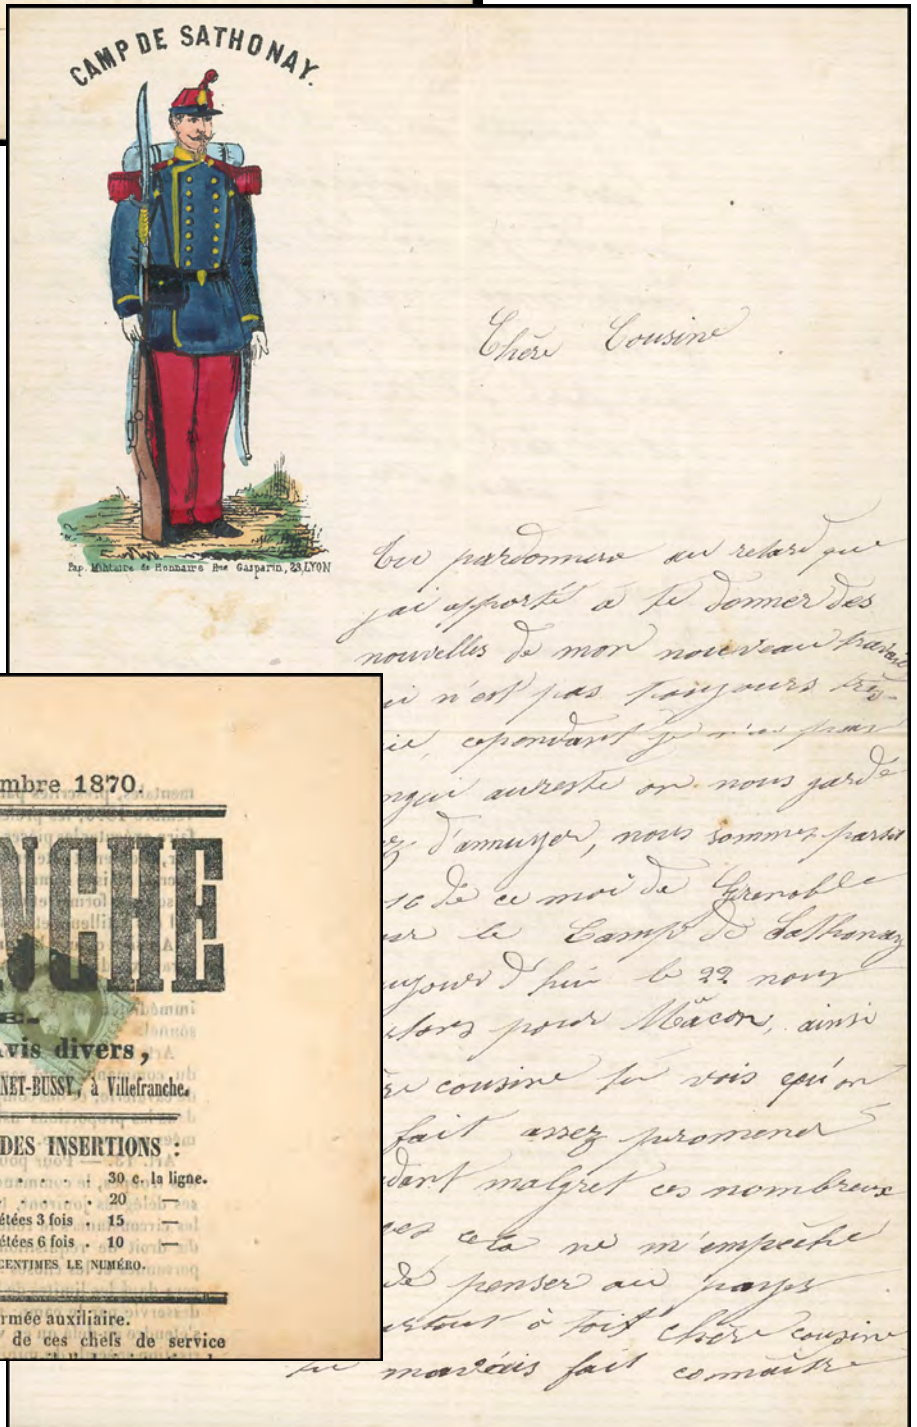 CAMP DE SATHONAY.
Pap. Militaire de Bonnaire Rue Gasparin, 23, LYON
Chère Cousine
Tu pardonnera au retard que
j'ai apporté a te donner des
nouvelles de mon nouveau travail
n'est pas toujours très
cependant je n'ai pas
aureste on nous garde
d'annuyer, nous sommes partit
16 de ce moi de Grenoble
le Camp de Sathonay
d'hui le 22 nous
pour Mâcon, ainsi
cousine tu vois qu'on
fait assez promener
malgret ces nombreux
cela ne m'empêche
de penser au pays
à toit chère cousine
tu mavais fait connaître
mbre 1870.
NCHE
E.
vis divers,
NET-BUSSY, à Villefranche.
DES INSERTIONS :
. . . . . 30 c. la ligne.
. . . . . 20 —
étées 3 fois . 15 —
étées 6 fois . 10 —
CENTIMES LE NUMÉRO.
rmée auxiliaire.
de ces chefs de service